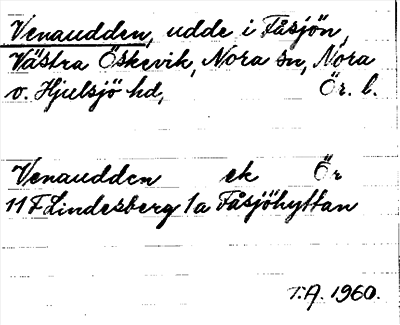 Venaudden, udde i Fåsjön,
Västra Öskevik, Nora sn, Nora
o. Hjulsjö hd, Ör. l.
Venaudden ek Ör
11 F Lindesberg 1a Fåsjöhyttan
T.A. 1960.